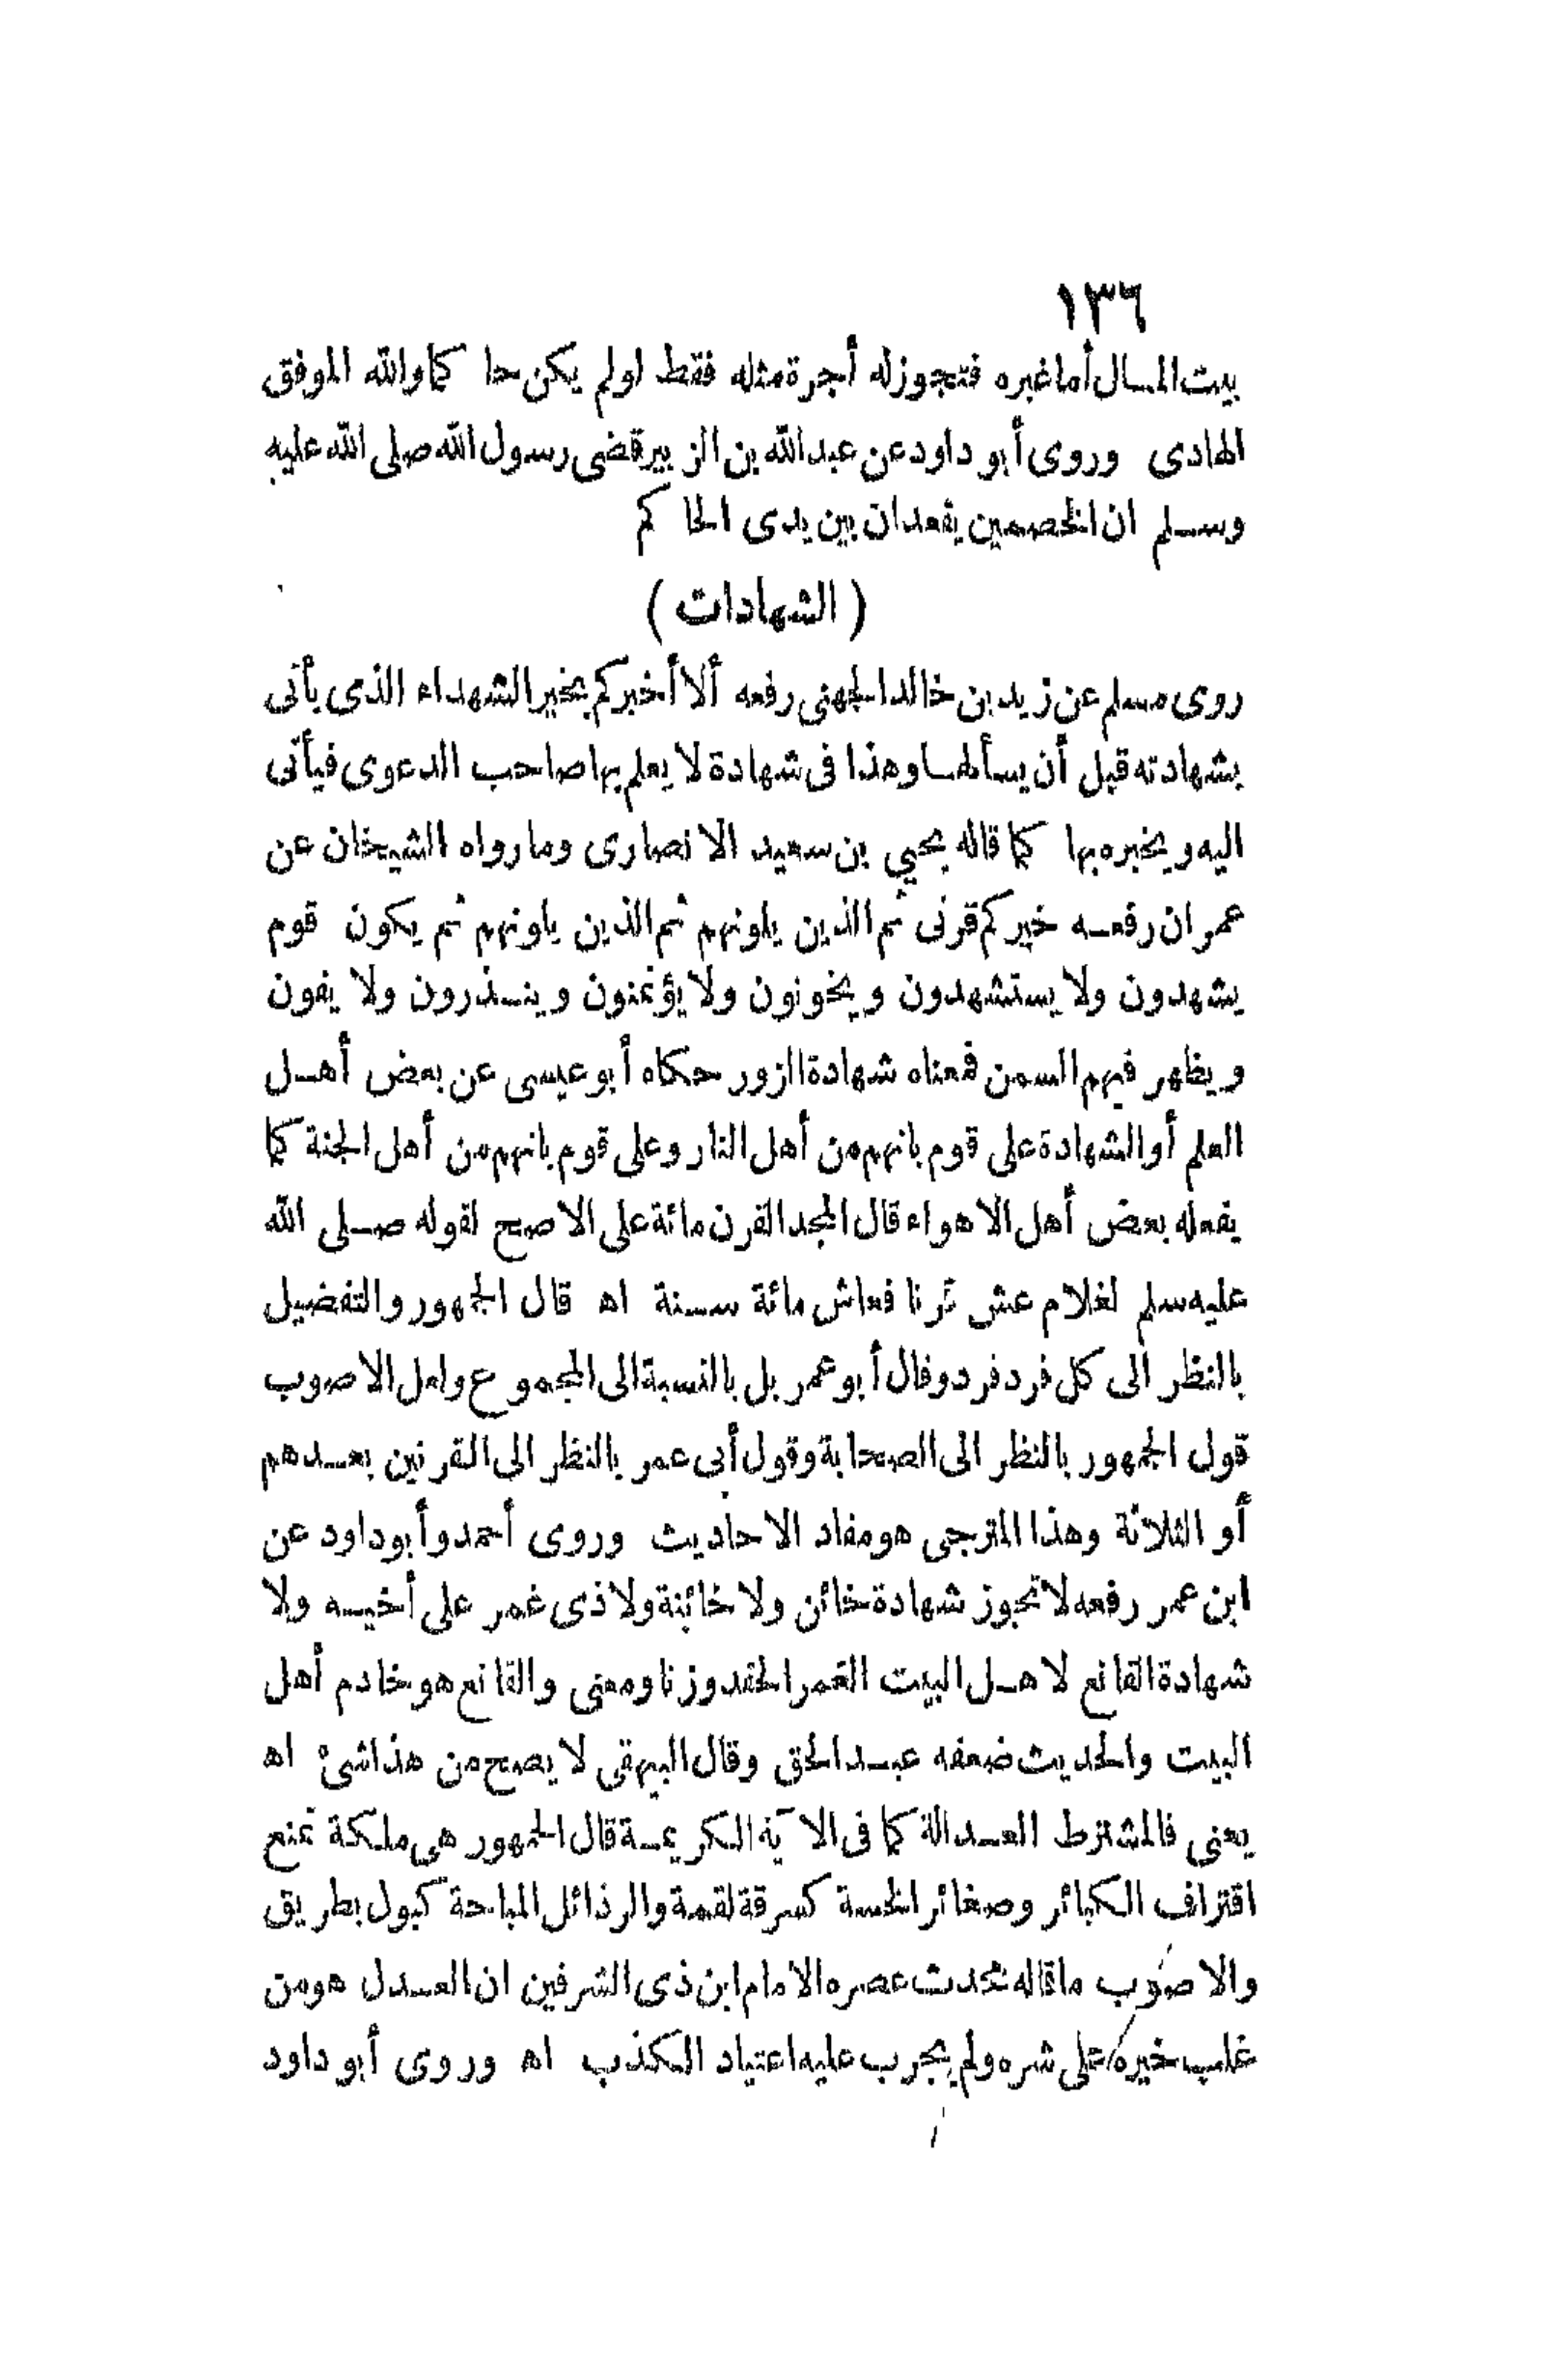 ١٣٦
بيت المال أما غيره فتجوز له أجرة مثله فقط لو لم يكن حاكما والله الموفق
الهادى وروى أبو داود عن عبد الله بن الزبير قضى رسول الله صلى الله عليه
وسلم ان الخصمين يقعدان بين يدى الحاكم
( الشهادات )
روى مسلم عن زيد بن خالد الجهنى رفعه ألا أخبركم بخير الشهداء الذى يأتى
بشهادته قبل أن يسألها وهذا فى شهادة لا يعلم بها صاحب الدعوى فيأتى
اليه ويخبره بها كما قاله يحيي بن سعيد الانصارى وما رواه الشيخان عن
عمران رفعه خيركم قرنى ثم الذين يلونهم ثم الذين يلونهم ثم يكون قوم
يشهدون ولا يستشهدون ويخونون ولا يؤتمنون وينذرون ولا يفون
ويظهر فيهم السمن فمعناه شهادة الزور حكاه أبو عيسى عن بعض أهل
العلم أو الشهادة على قوم بانهم من أهل النار وعلى قوم بانهم من أهل الجنة كما
يفعله بعض أهل الاهواء قال المجد القرن مائة على الاصح لقوله صلى الله
عليه سلم لغلام عش قرنا فعاش مائة سنة اه قال الجمهور والتفضيل
بالنظر الى كل فرد فرد وقال أبو عمر بل بالنسبة الى المجموع ولعل الاصوب
قول الجمهور بالنظر الى الصحابة وقول أبى عمر بالنظر الى القرنين بعدهم
أو الثلاثة وهذا المترجى هو مفاد الاحاديث وروى أحمد وأبو داود عن
ابن عمر رفعه لا تجوز شهادة خائن ولا خائنة ولا ذى غمر على أخيه ولا
شهادة القانع لاهل البيت الغمر الحقد وزنا ومعنى والقانع هو خادم أهل
البيت والحديث ضعفه عبد الحق وقال البيهقى لا يصح من هذا شئ اه
يعنى فالمشترط العدالة كما فى الآية الكريمة قال الجمهور هى ملكة تمنع
اقتراف الكبائر وصغائر الخسة كسرقة لقمة والرذائل المباحة كبول بطريق
والاصوب ما قاله محدث عصره الامام ابن ذى الشرفين ان العدل هو من
غلب خيره على شره ولم يجرب عليه اعتياد الكذب اه وروى أبو داود